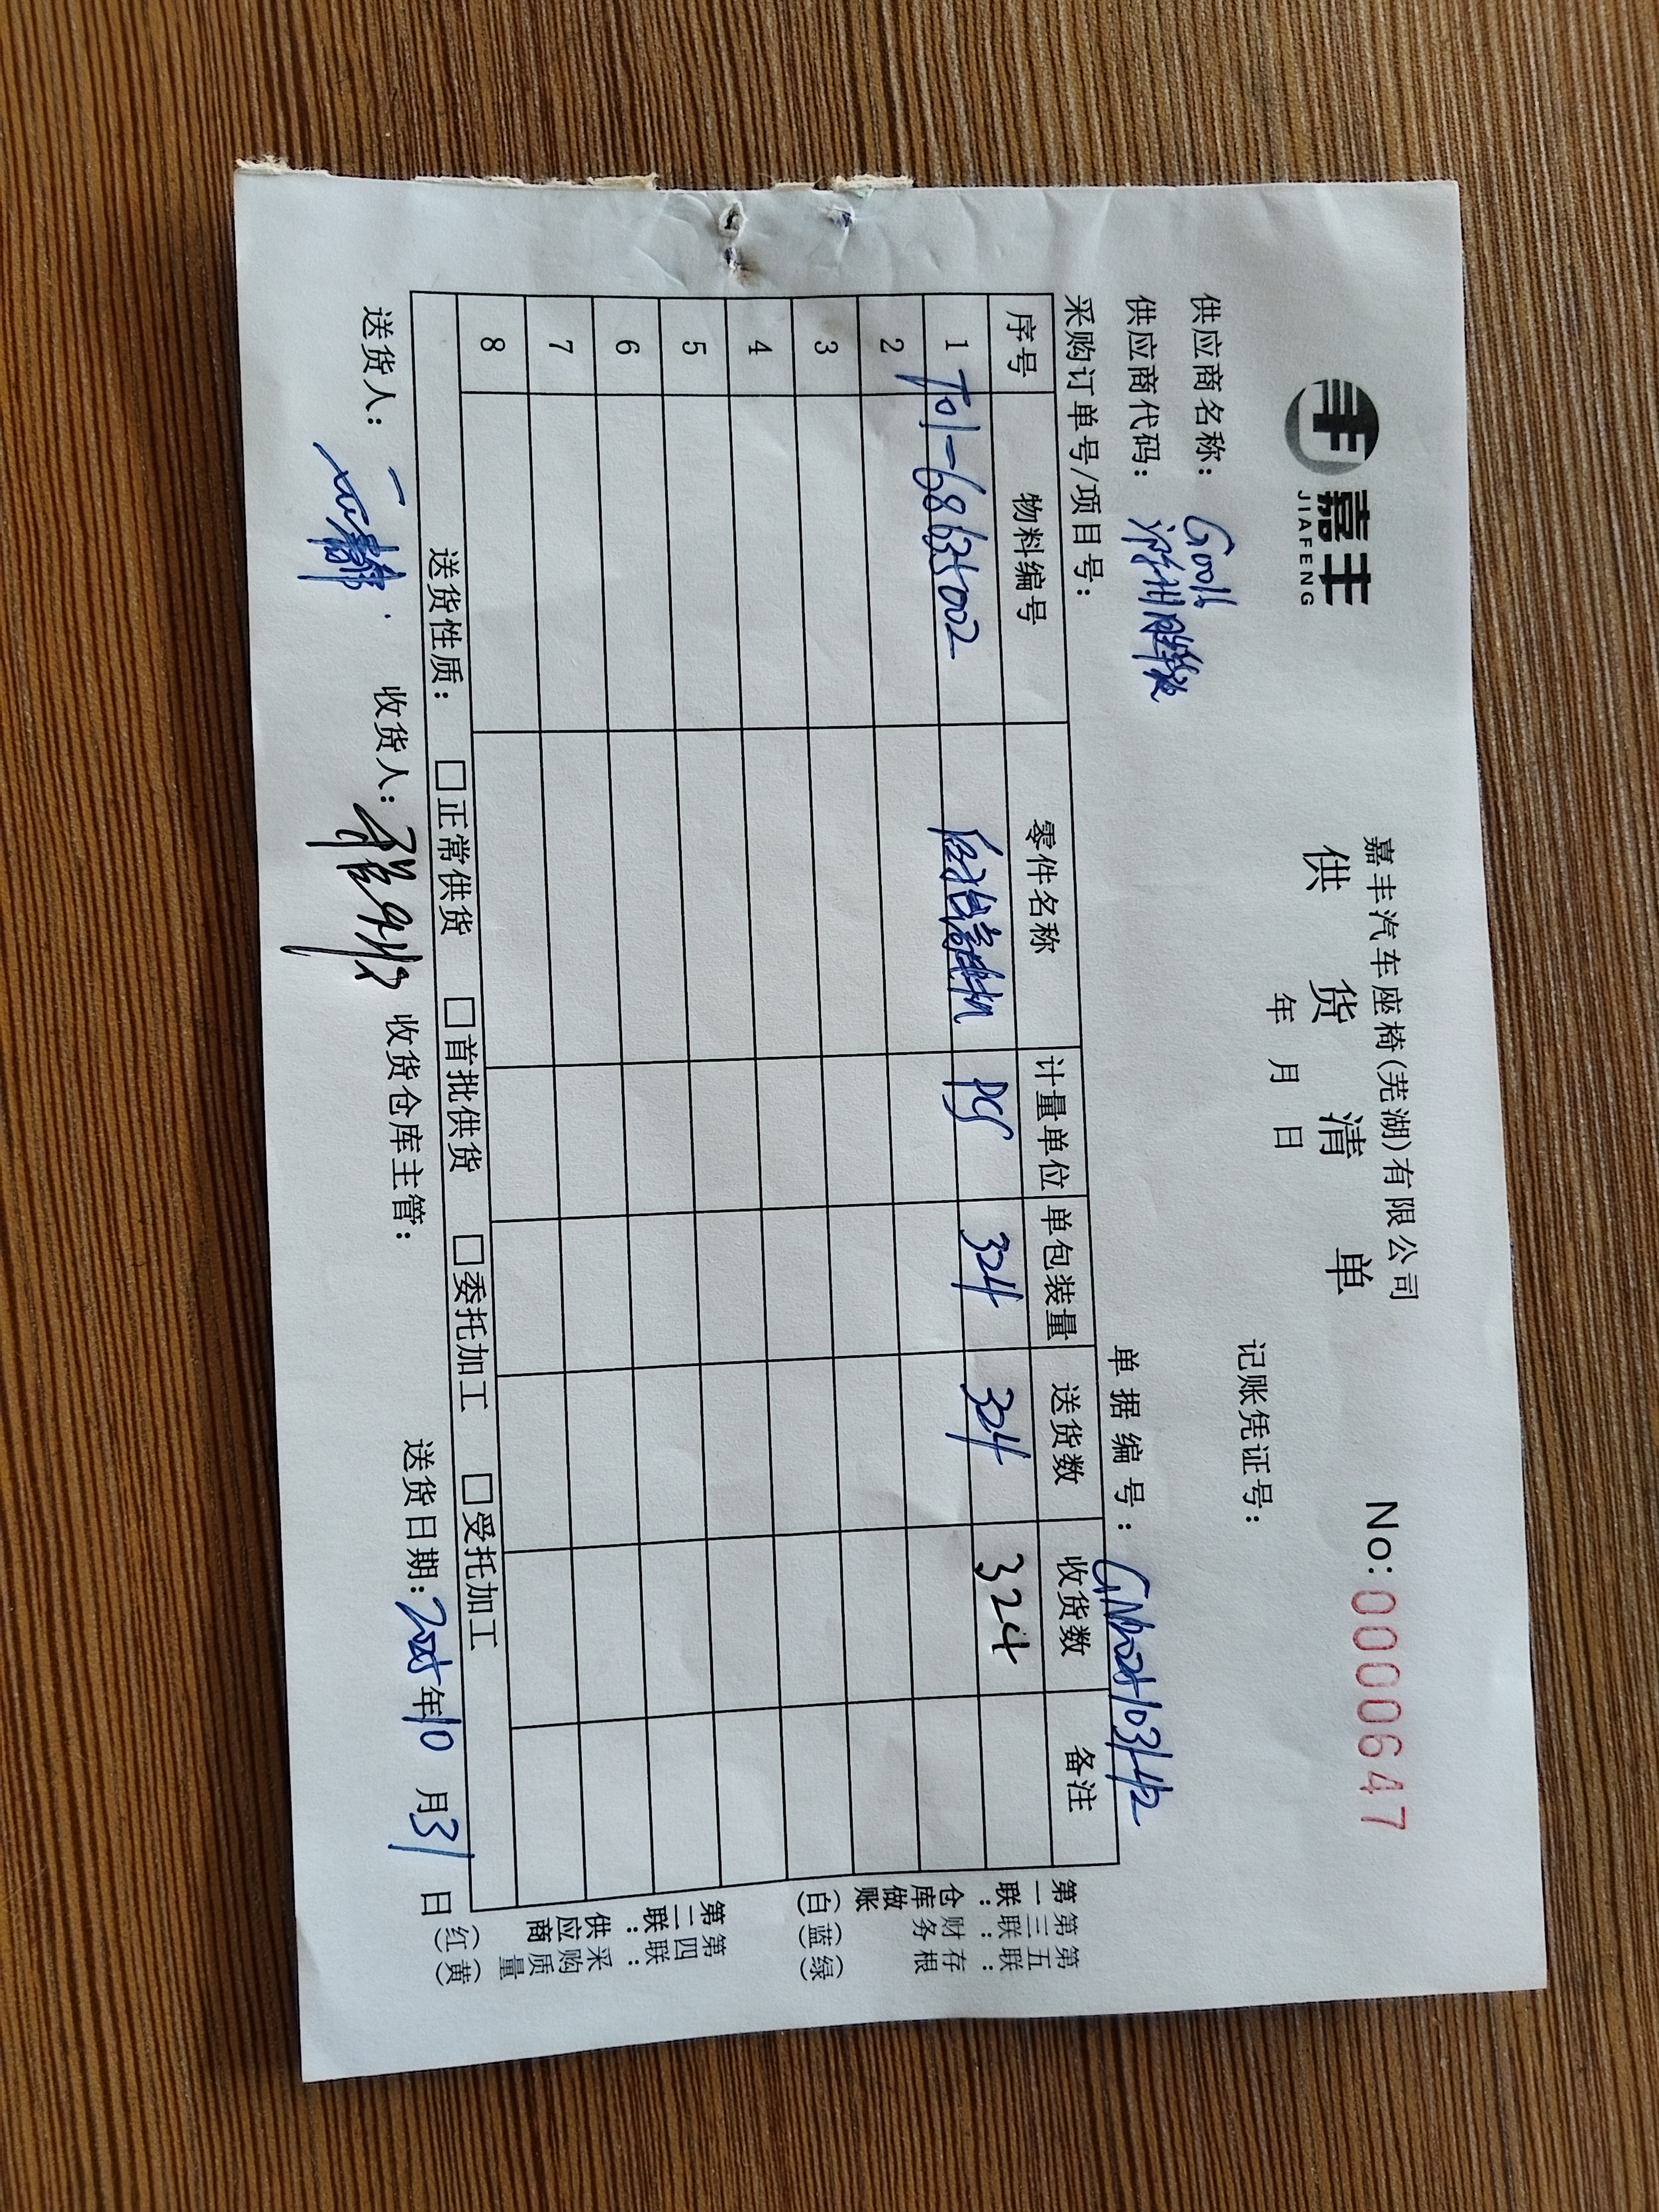 嘉丰
JIAFENG
嘉丰汽车座椅(芜湖)有限公司
供货清单
No:0000647
年 月 日
记账凭证号:
供应商名称: G0016
供应商代码:
采购订单号/项目号:
单据编号:
序号 物料编号 零件名称 计量单位 单包装量 送货数 收货数 备注
1 T01-68635002 PCS 324 324 324
2
3
4
5
6
7
8
送货性质: □正常供货 □首批供货 □委托加工 □受托加工
送货人: 收货人: 收货仓库主管: 送货日期: 2025年10月31日
第一联:仓库做账(白)
第二联:供应商(红)
第三联:财务(蓝)
第四联:采购质量(黄)
第五联:存根(绿)